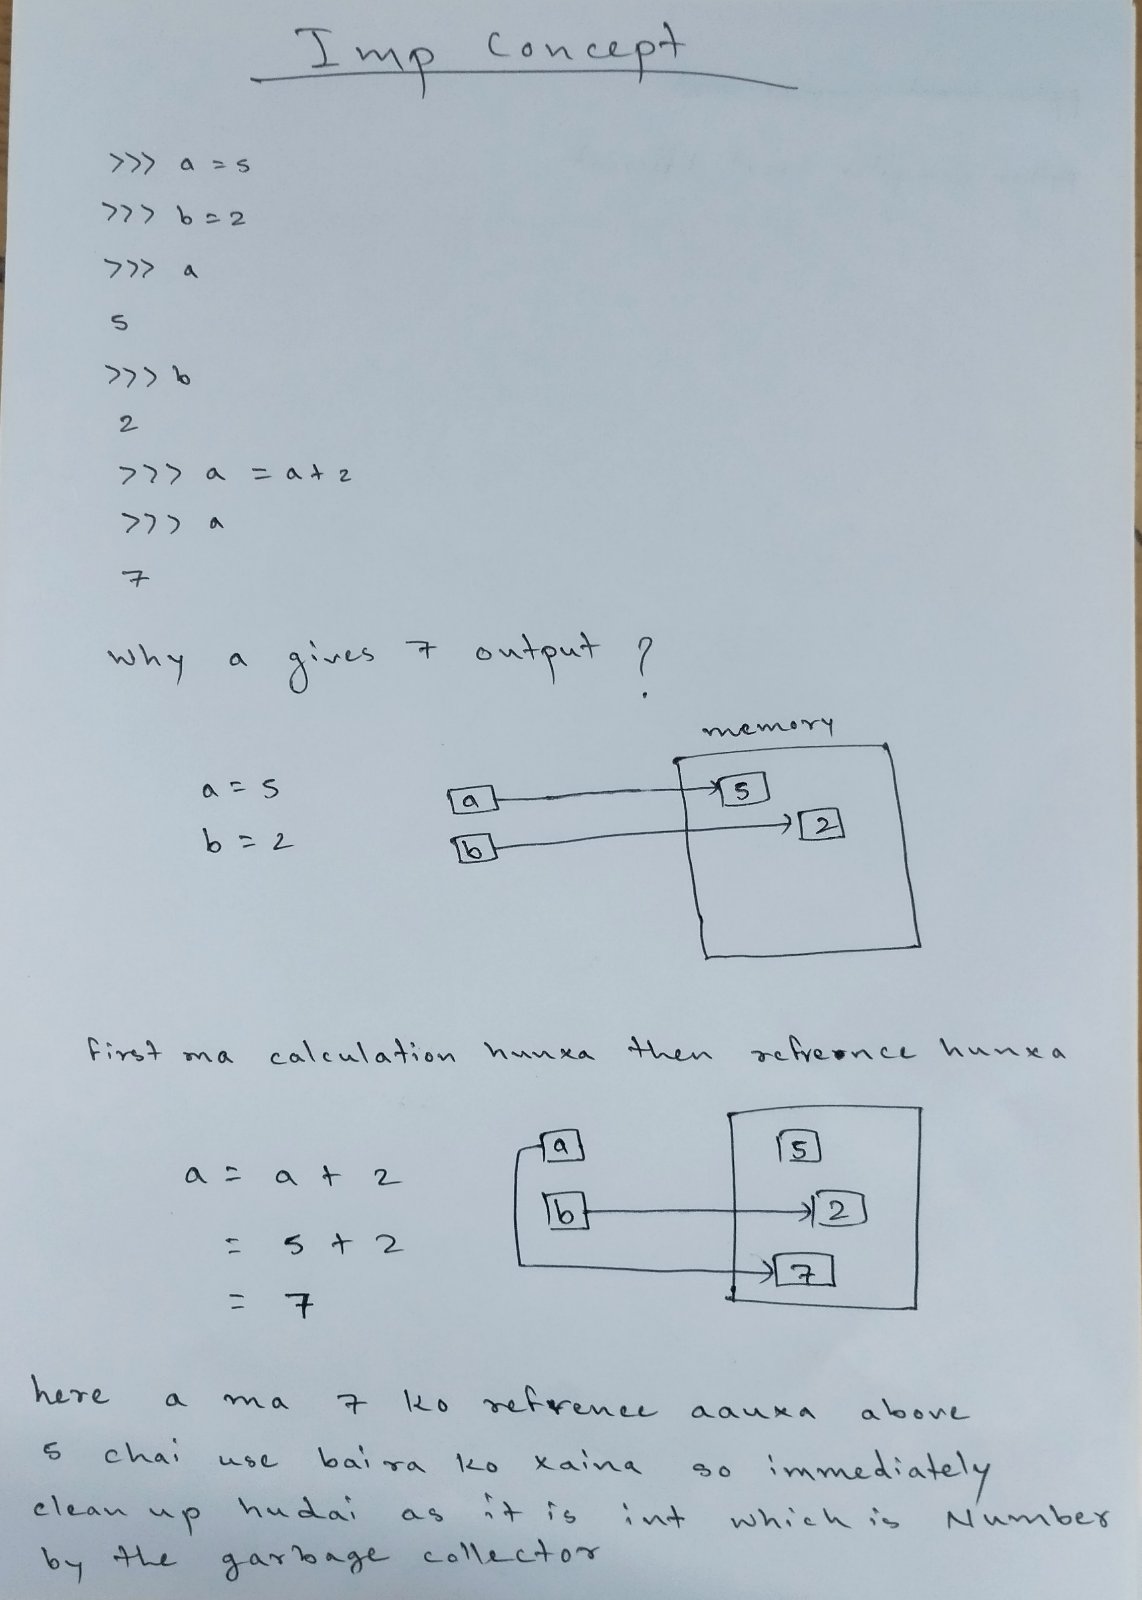 Imp Concept
>>> a = 5
>>> b = 2
>>> a
5
>>> b
2
>>> a = a + 2
>>> a
7
Why a gives 7 output ?
memory
a = 5
a
5
b = 2
b
2
first ma calculation hunxa then refreonce hunxa
a = a + 2
a
5
= 5 + 2
b
2
= 7
7
here a ma 7 ko refrence aauxa above
5 chai use baira ko xaina so immediately
clean up hudai as it is int which is Number
by the garbage collector